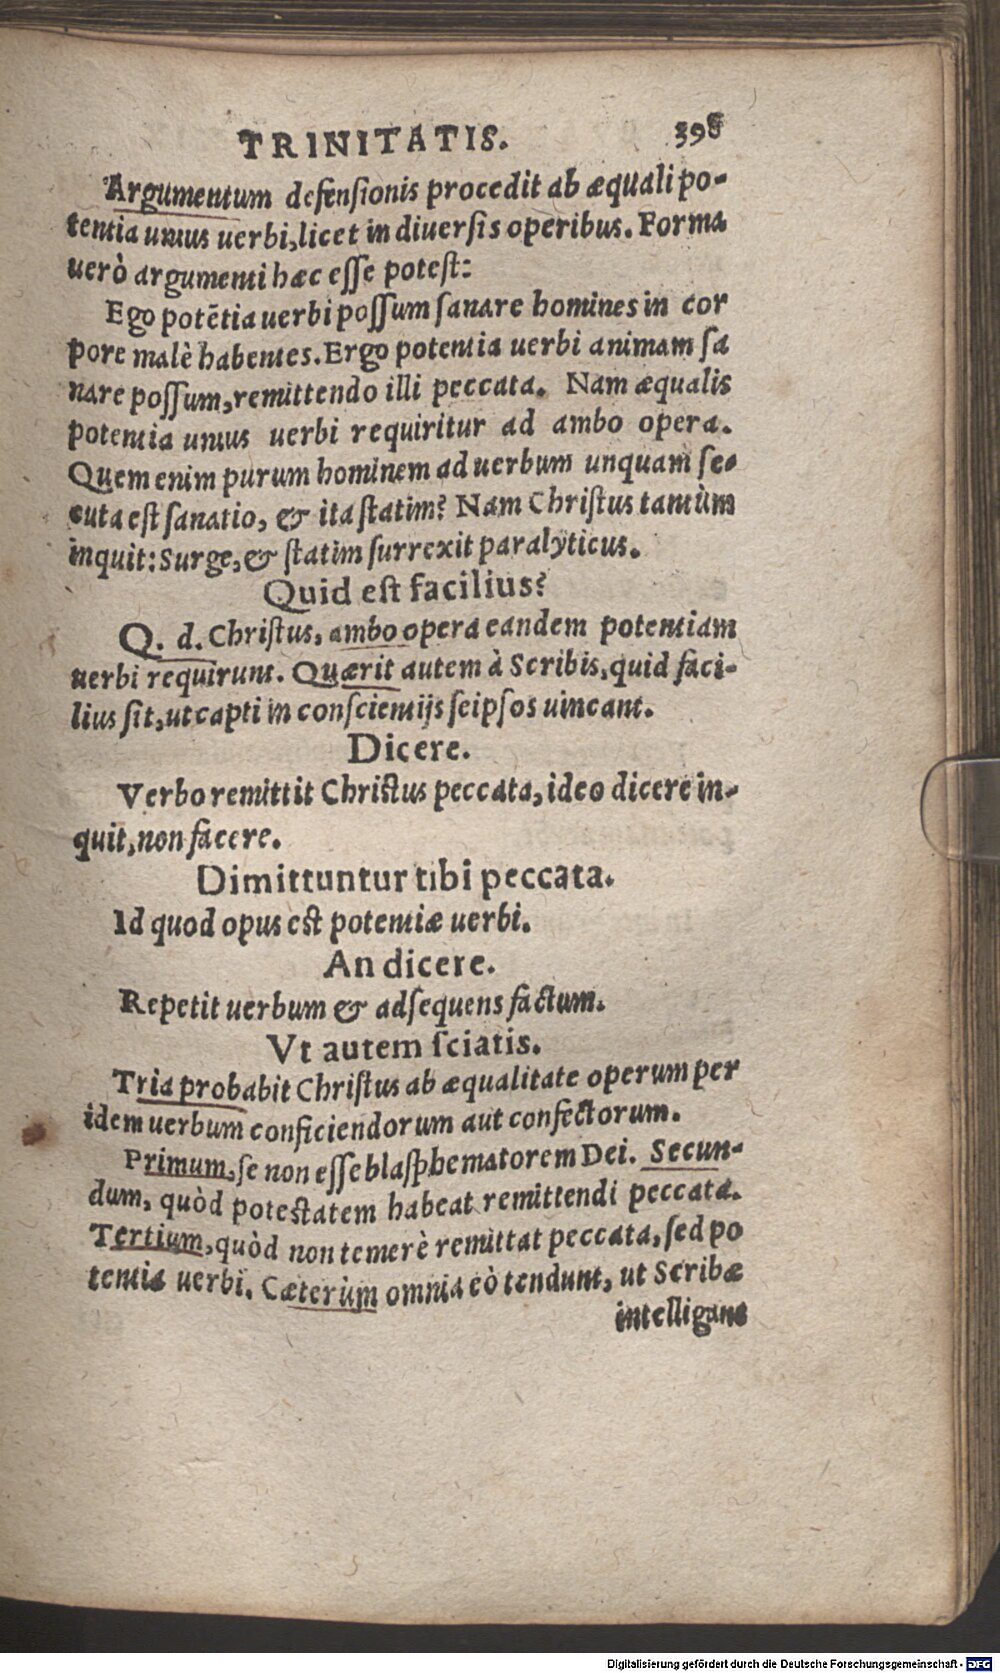 TRINITATIS. 398
Argumentum defensionis procedit ab æquali po-
tentia unius uerbi, licet in diuersis operibus. Forma
uerò argumenti hæc esse potest:
Ego potẽtia uerbi possum sanare homines in cor
pore malè habentes. Ergo potentia uerbi animam sa
nare possum, remittendo illi peccata. Nam æqualis
potentia unius uerbi requiritur ad ambo opera.
Quem enim purum hominem ad uerbum unquam se-
cuta est sanatio, & ita statim? Nam Christus tantùm
inquit: Surge, & statim surrexit paralyticus.
Quid est facilius?
Q. d. Christus, ambo opera eandem potentiam
uerbi requirunt. Quærit autem à Scribis, quid faci-
lius sit, ut capti in conscientijs seipsos uincant.
Dicere.
Verbo remittit Christus peccata, ideo dicere in-
quit, non facere.
Dimittuntur tibi peccata.
Id quod opus est potentiæ uerbi.
An dicere.
Repetit uerbum & adsequens factum.
Vt autem sciatis.
Tria probabit Christus ab æqualitate operum per
idem uerbum conficiendorum aut confectorum.
Primum, se non esse blasphematorem Dei. Secun-
dum, quòd potestatem habeat remittendi peccata.
Tertium, quòd non temerè remittat peccata, sed po
tentia uerbi. Cæterùm omnia eò tendunt, ut Scribæ
intelligant
Digitalisierung gefördert durch die Deutsche Forschungsgemeinschaft - DFG